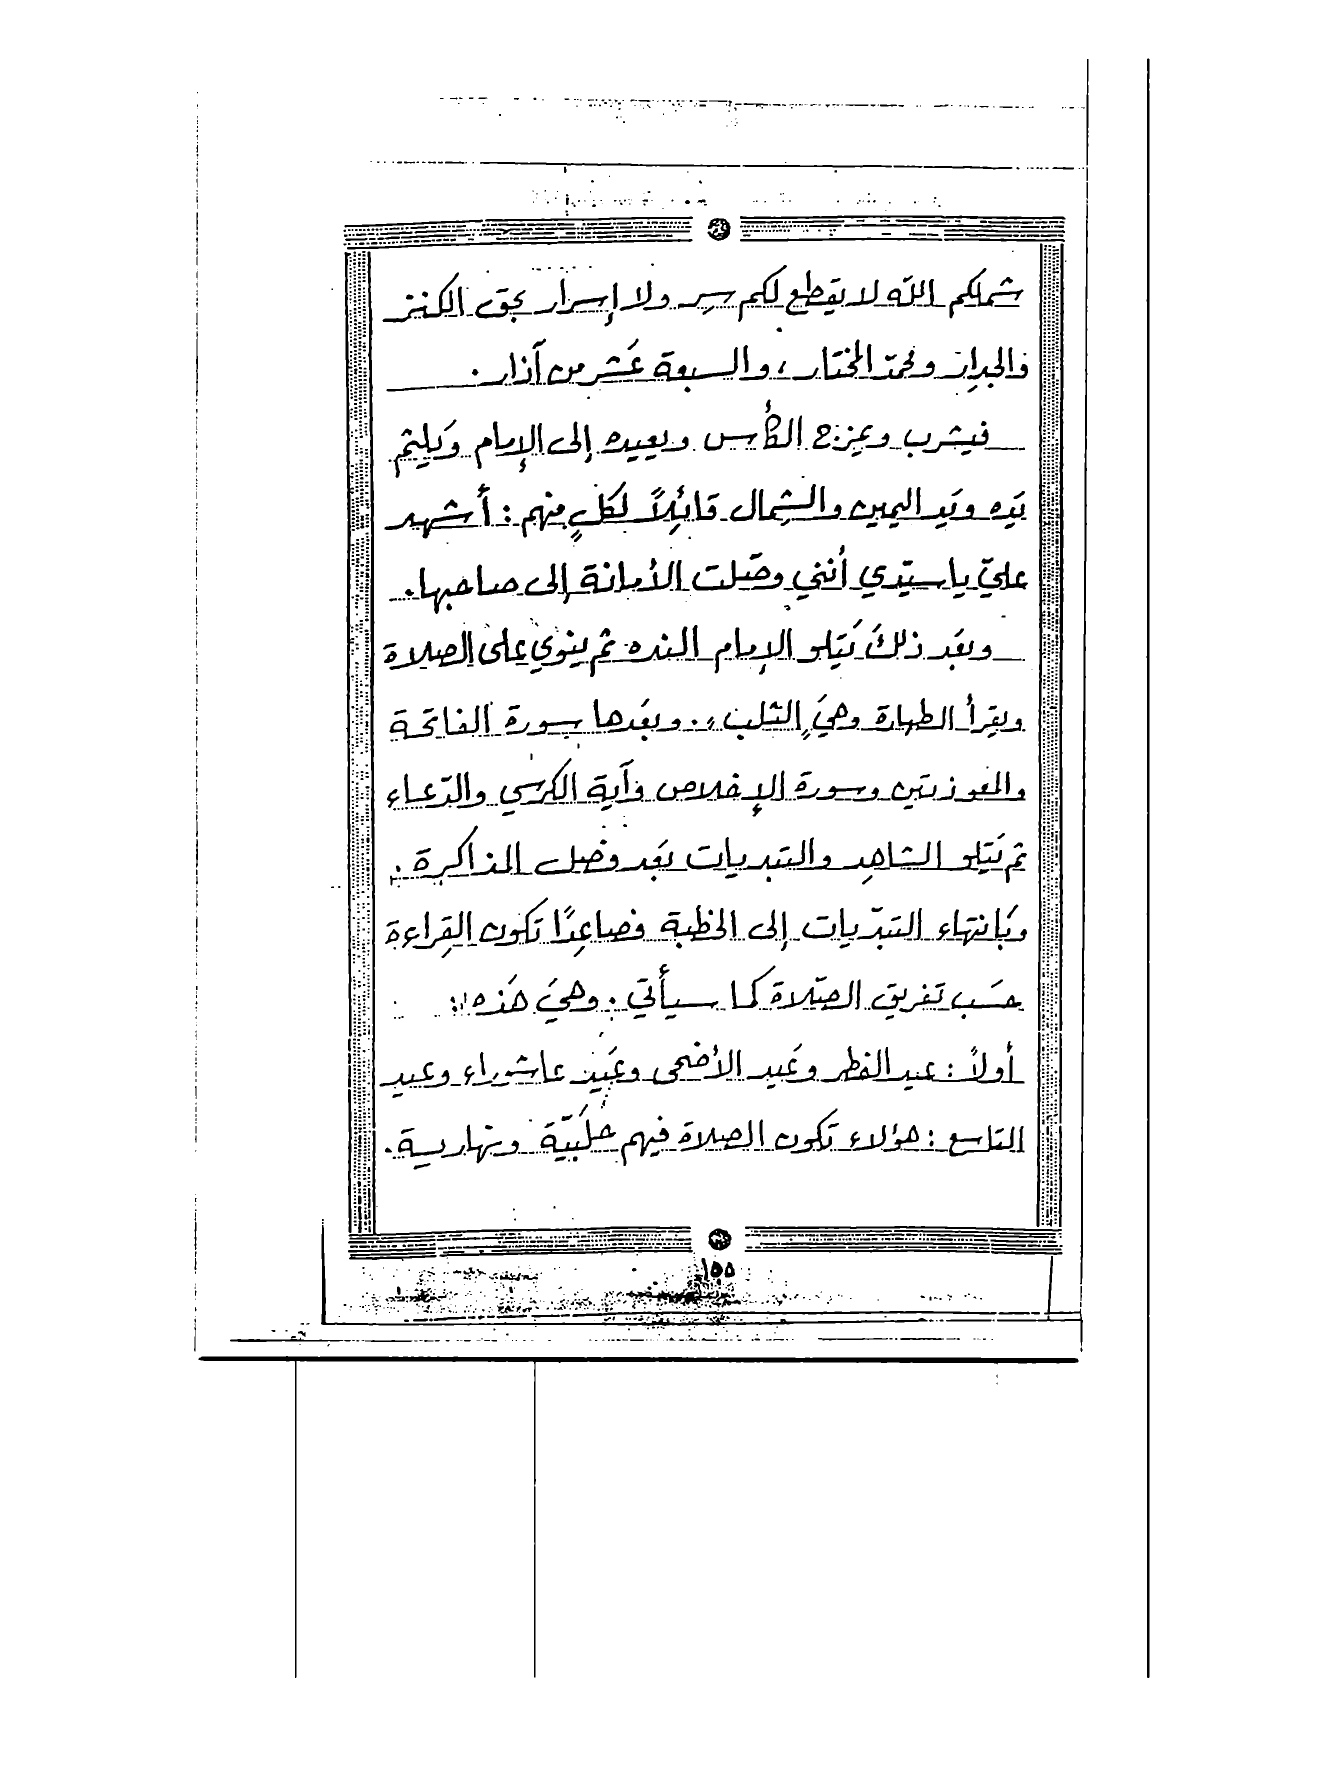 شملكم الله لا يقطع لكم سِر ولا إسرار بحق الكنز
والجدار ومحمّد المختار، والسبعة عَشر من آذار.
فيشرب ويمزج الكأس ويعيده إلى الإمام وَيلثم
يَده وَيَد اليمين والشِمال قائِلاً لكلٍ منهم: أشهد
عليّ يا سيّدي أنني وصّلت الأمانة إلى صاحبها.
وبعَد ذلكَ يَتلو الإمام النده ثم ينوي على الصلاة
ويقرأ الطهارة وهيَ الثلب، وبعَدها سورة الفاتحة
والمعوذتين وسورة الإخلاص وآية الكرسي والدّعاء
ثم يَتلو الشاهِد والتبديات بعَد وصل المذاكرة.
وبَانتهاء التبدّيات إلى الخطبة فصاعِدًا تكون القِراءة
حسَب تفريق الصّلاة كما سيأتي. وهيَ هَذه:
أولاً: عيد الفطر وعَيد الأضحى وعَيد عاشوراء وعيد
التاسع: هؤلاء تكون الصلاة فيهم حلَبيّة ونهارية.
١٥٥